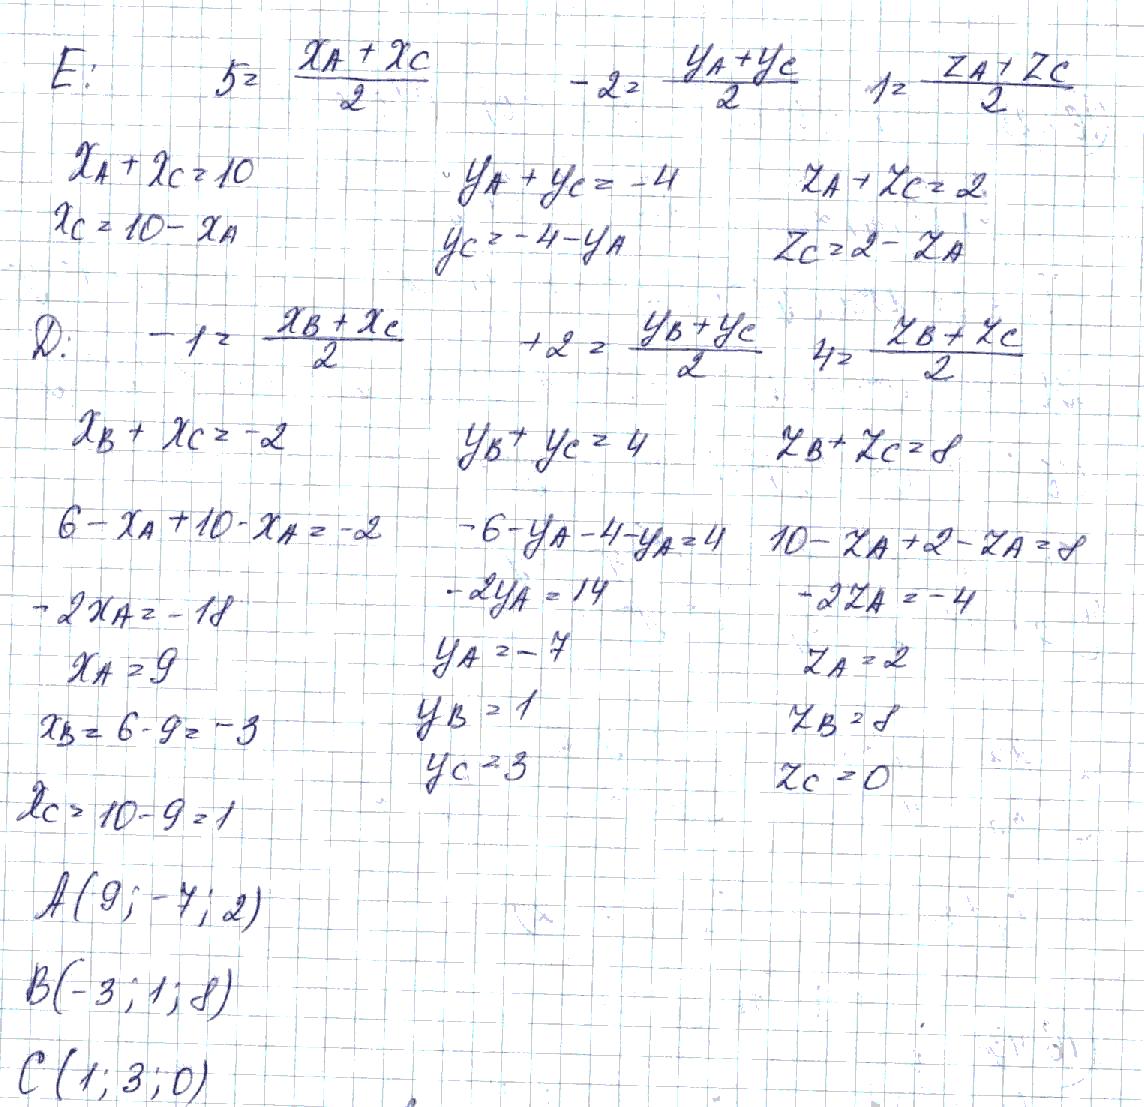 E: 5 = (xA + xC)/2 -2 = (yA + yC)/2 1 = (zA + zC)/2
xA + xC = 10 yA + yC = -4 zA + zC = 2
xC = 10 - xA yC = -4 - yA zC = 2 - zA
D: -1 = (xB + xC)/2 +2 = (yB + yC)/2 4 = (zB + zC)/2
xB + xC = -2 yB + yC = 4 zB + zC = 8
6 - xA + 10 - xA = -2 -6 - yA - 4 - yA = 4 10 - zA + 2 - zA = 8
-2xA = -18 -2yA = 14 -2zA = -4
xA = 9 yA = -7 zA = 2
xB = 6 - 9 = -3 yB = 1 zB = 8
xC = 10 - 9 = 1 yC = 3 zC = 0
A(9; -7; 2)
B(-3; 1; 8)
C(1; 3; 0)